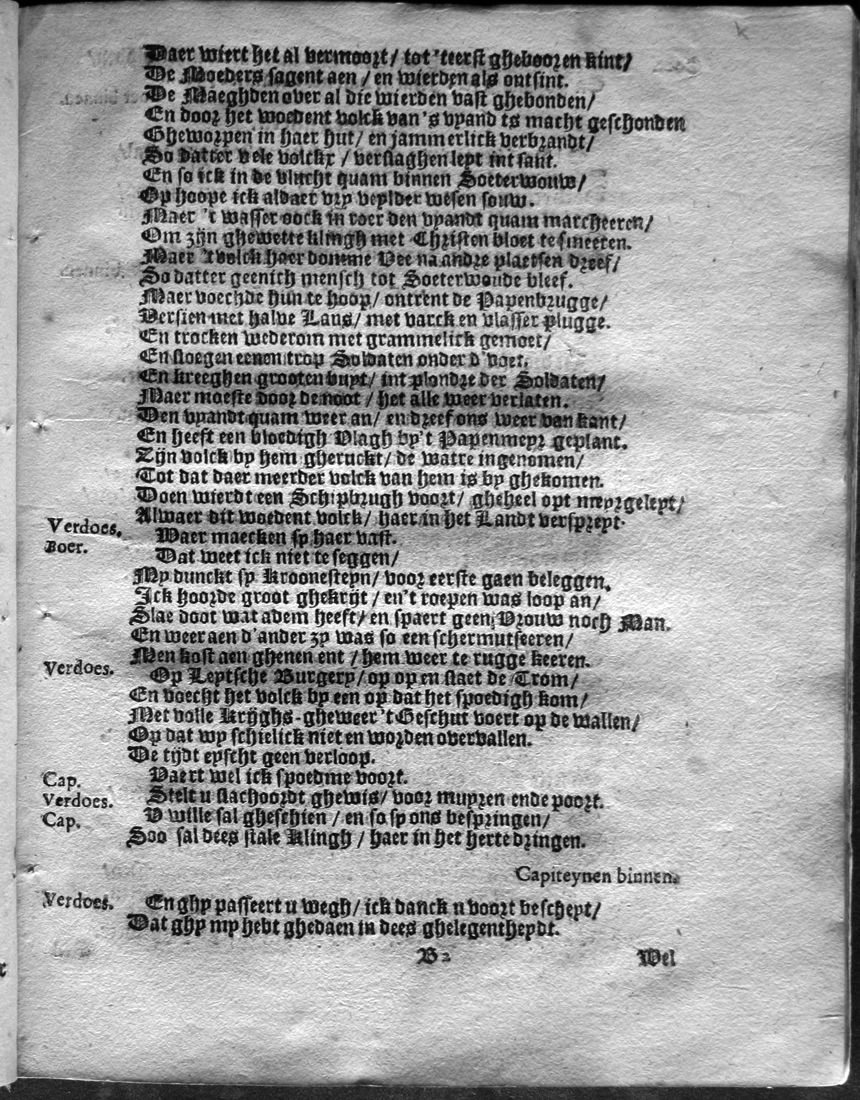 Daer wiert het al vermoort/ tot 'teerst ghebooren kint/
De Moeders sagent aen / en wierden als ontsint.
De Maeghden over al die wierden vast ghebonden/
En door het woedent volck van 's vyand ts macht geschonden
Gheworpen in haer hut/ en jammerlick verbrandt/
So datter vele volckx / verslaghen leyt int sant.
En so ick in de vlucht quam binnen Soeterwouw/
Op hoope ick aldaer vry veylder wesen souw.
Maer 't wasser oock in roer den vyandt quam marcheeren/
Om zijn ghewette klingh met Christen bloet te smeeren.
Maer 't volck haer domme Vee na andre plaetsen dreef/
So datter geenich mensch tot Soeterwoude bleef.
Maer voechde hun te hoop/ ontrent de Papenbrugge/
Versien met halve Laus/ met varck en vlasser plugge.
En trocken wederom met grammelick gemoet/
En sloegen eenen trop Soldaten onder d'voet.
En kreeghen grooten buyt/ int plondre der Soldaten/
Maer moeste door de noot / het alle weer verlaten.
Den vyandt quam weer an/ en dreef ons weer van kant/
En heeft een bloedigh Vlagh by't Papenmeyr geplant.
Zijn volck by hem gheruckt/ de watre ingenomen/
Tot dat daer meerder volck van hem is by ghekomen.
Doen wierdt een Schipbrugh voort/ gheheel opt meyrgeleyt/
Alwaer dit woedent volck/ haer in het Landt verspreyt.
Verdoes. Waer maecken sy haer vast.
Boer. Dat weet ick niet te seggen/
My dunckt sy Kroonesteyn/ voor eerste gaen beleggen.
Ick hoorde groot ghekrijt / en't roepen was loop an/
Slae doot wat adem heeft/ en spaert geen Vrouw noch Man.
En weer aen d'ander zy was so een schermutseeren/
Men kost aen ghenen ent / hem weer te rugge keeren.
Verdoes. Op Leytsche Burgery/ op op en slaet de Trom/
En voecht het volck by een op dat het spoedigh kom/
Met volle Krijghs-gheweer 't Geschut voert op de wallen/
Op dat wy schielick niet en worden overvallen.
De tijdt eyscht geen verloop.
Cap. Vaert wel ick spoedme voort.
Verdoes. Stelt u slachoordt ghewis/ voor muyren ende poort.
Cap. V wille sal gheschien / en so sy ons bespringen/
Soo sal dees stale Klingh / haer in het herte dringen.
Capiteynen binnen.
Verdoes. En ghy passeert u wegh/ ick danck u voort bescheyt/
Dat ghy my hebt ghedaen in dees ghelegentheydt.
B2 Wel